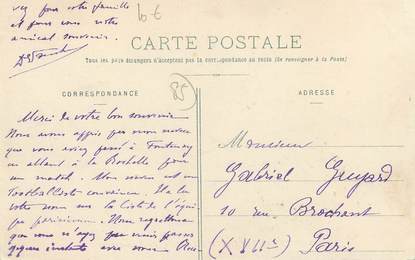 vez pour votre famille
et pour vous notre
amical souvenir.
CARTE POSTALE
Tous les pays étrangers n'acceptent pas la correspondance au recto (Se renseigner à la Poste)
CORRESPONDANCE
85
Merci de votre bon souvenir
Nous avons appris par mon neveu
que vous aviez passé à Fontenay
en allant à la Rochelle pour
un match. Mon neveu est un
footballiste convaincu. Il a lu
votre nom sur la liste de l'équipe
parisienne. Nous regrettons
que vous n'ayez pu venir passer
quelques instants avec nous
ADRESSE
Monsieur
Gabriel Guyard
10 rue Brochant
(XVIIe)
Paris